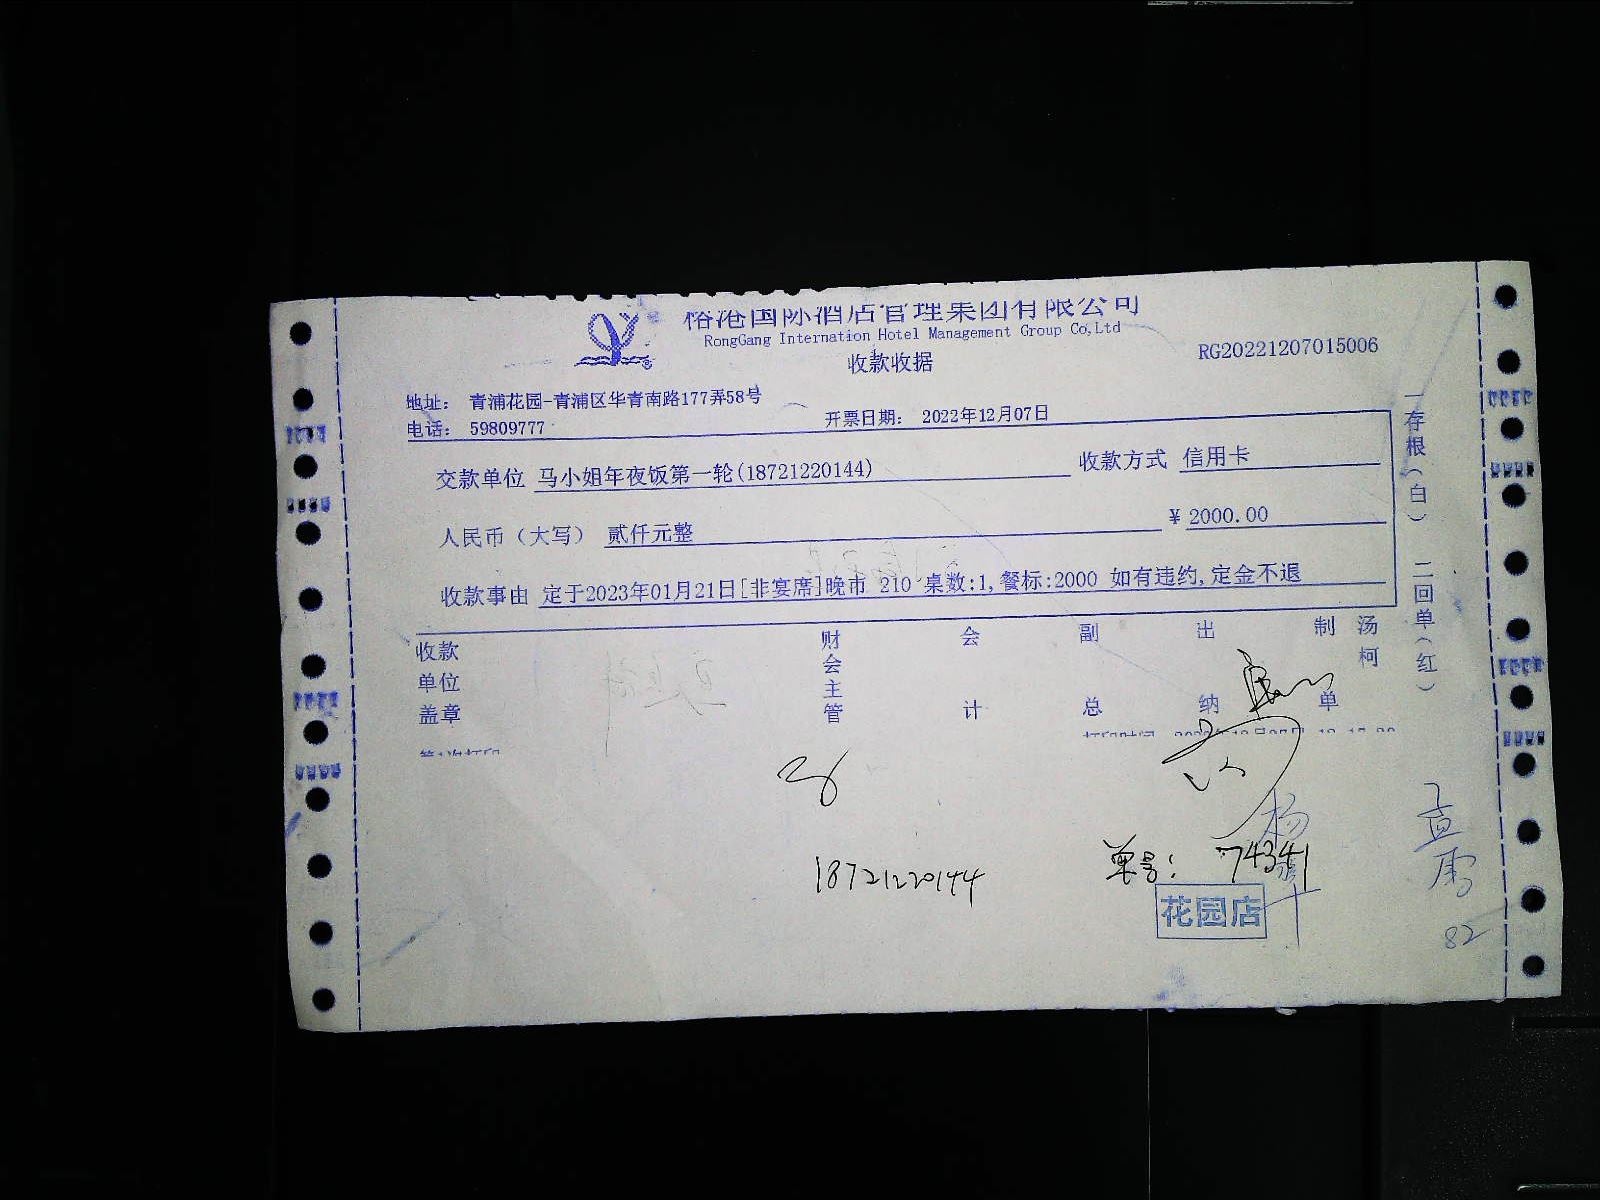 榕港国际酒店管理集团有限公司
RongGang Internation Hotel Management Group Co,Ltd
收款收据
RG20221207015006
地址： 青浦花园-青浦区华青南路177弄58号
电话： 59809777
开票日期： 2022年12月07日
交款单位 马小姐年夜饭第一轮(18721220144)
收款方式 信用卡
人民币（大写） 贰仟元整
¥ 2000.00
收款事由 定于2023年01月21日[非宴席]晚市 210 桌数:1,餐标:2000 如有违约,定金不退
收款单位盖章
财会主管
会计
副总
出纳
制单
汤柯
一存根（白） 二回单（红）
18721220144
单号： 74341
花园店
82